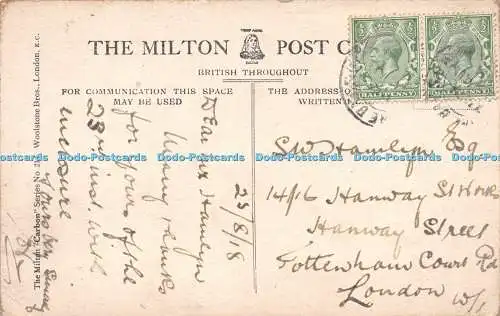 THE MILTON POST C
TRADE MARK
BRITISH THROUGHOUT
FOR COMMUNICATION THIS SPACE
MAY BE USED
THE ADDRESS O
WRITTEN
HALFPENNY
HALFPENNY
The Milton "Carbon" Series No. 2
Woolstone Bros., London, E.C.
25/8/18
Dear Mr Hamlyn
Many thanks
for yours of the
23rd inst. with
enclosure
S.W. Hamlyn Esq
14/16 Hanway St Works
Hanway Street
Tottenham Court Rd
London
W/1
Dodo-Postcards Dodo-Postcards Dodo-Postcards Dodo-Postcards Dodo-Postcards Dodo-Postcards